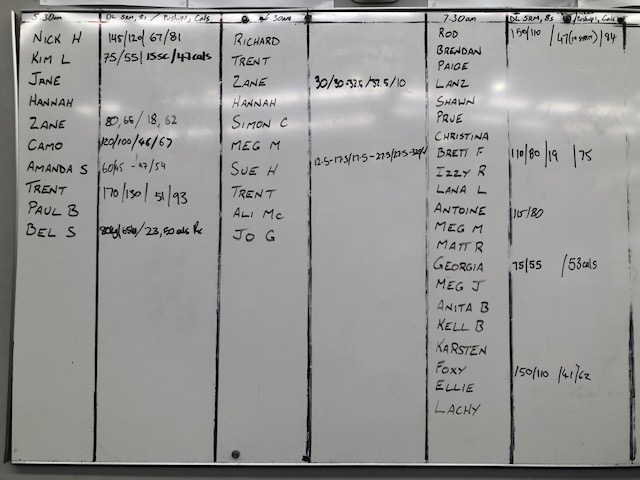 5.30am DL 5RM, 8s / Pushups, Cals
NICK H 145/120/ 67/81
KIM L 75/55/ 15sc/47cals
JANE
HANNAH
ZANE 80,65/ 18, 62
CAMO 120/100/46/67
AMANDA S 60/45 - 47/54
TRENT 170/130/ 51/93
PAUL B
BEL S 23,50cals Rx
6.30am
RICHARD
TRENT
ZANE 30/30-32.5/32.5/10
HANNAH
SIMON C
MEG M
SUE H 12.5-17.5/17.5-27.5/27.5-
TRENT
ALI MC
JO G
7.30am DL 5RM, 8s / Pushups, Cals
ROD 150/110 /47 /84
BRENDAN
PAIGE
LANZ
SHAWN
PRUE
CHRISTINA
BRETT F 110/80/19 /75
IZZY R
LANA L
ANTOINE 115/80
MEG M
MATT R
GEORGIA 75/55 /53cals
MEG J
ANITA B
KELL B
KARSTEN
FOXY 150/110 /41/62
ELLIE
LACHY